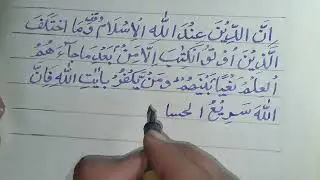 انَّ الدِّيْنَ عِنْدَ اللهِ الْاِسْلَامُ وَمَا اخْتَلَفَ
الَّذِيْنَ اُوْتُوا الْكِتٰبَ اِلَّا مِنْۢ بَعْدِ مَا جَآءَهُمُ
الْعِلْمُ بَغْيًا بَيْنَهُمْ وَمَنْ يَّكْفُرْ بِاٰيٰتِ اللهِ فَاِنَّ
اللهَ سَرِيْعُ الحسا